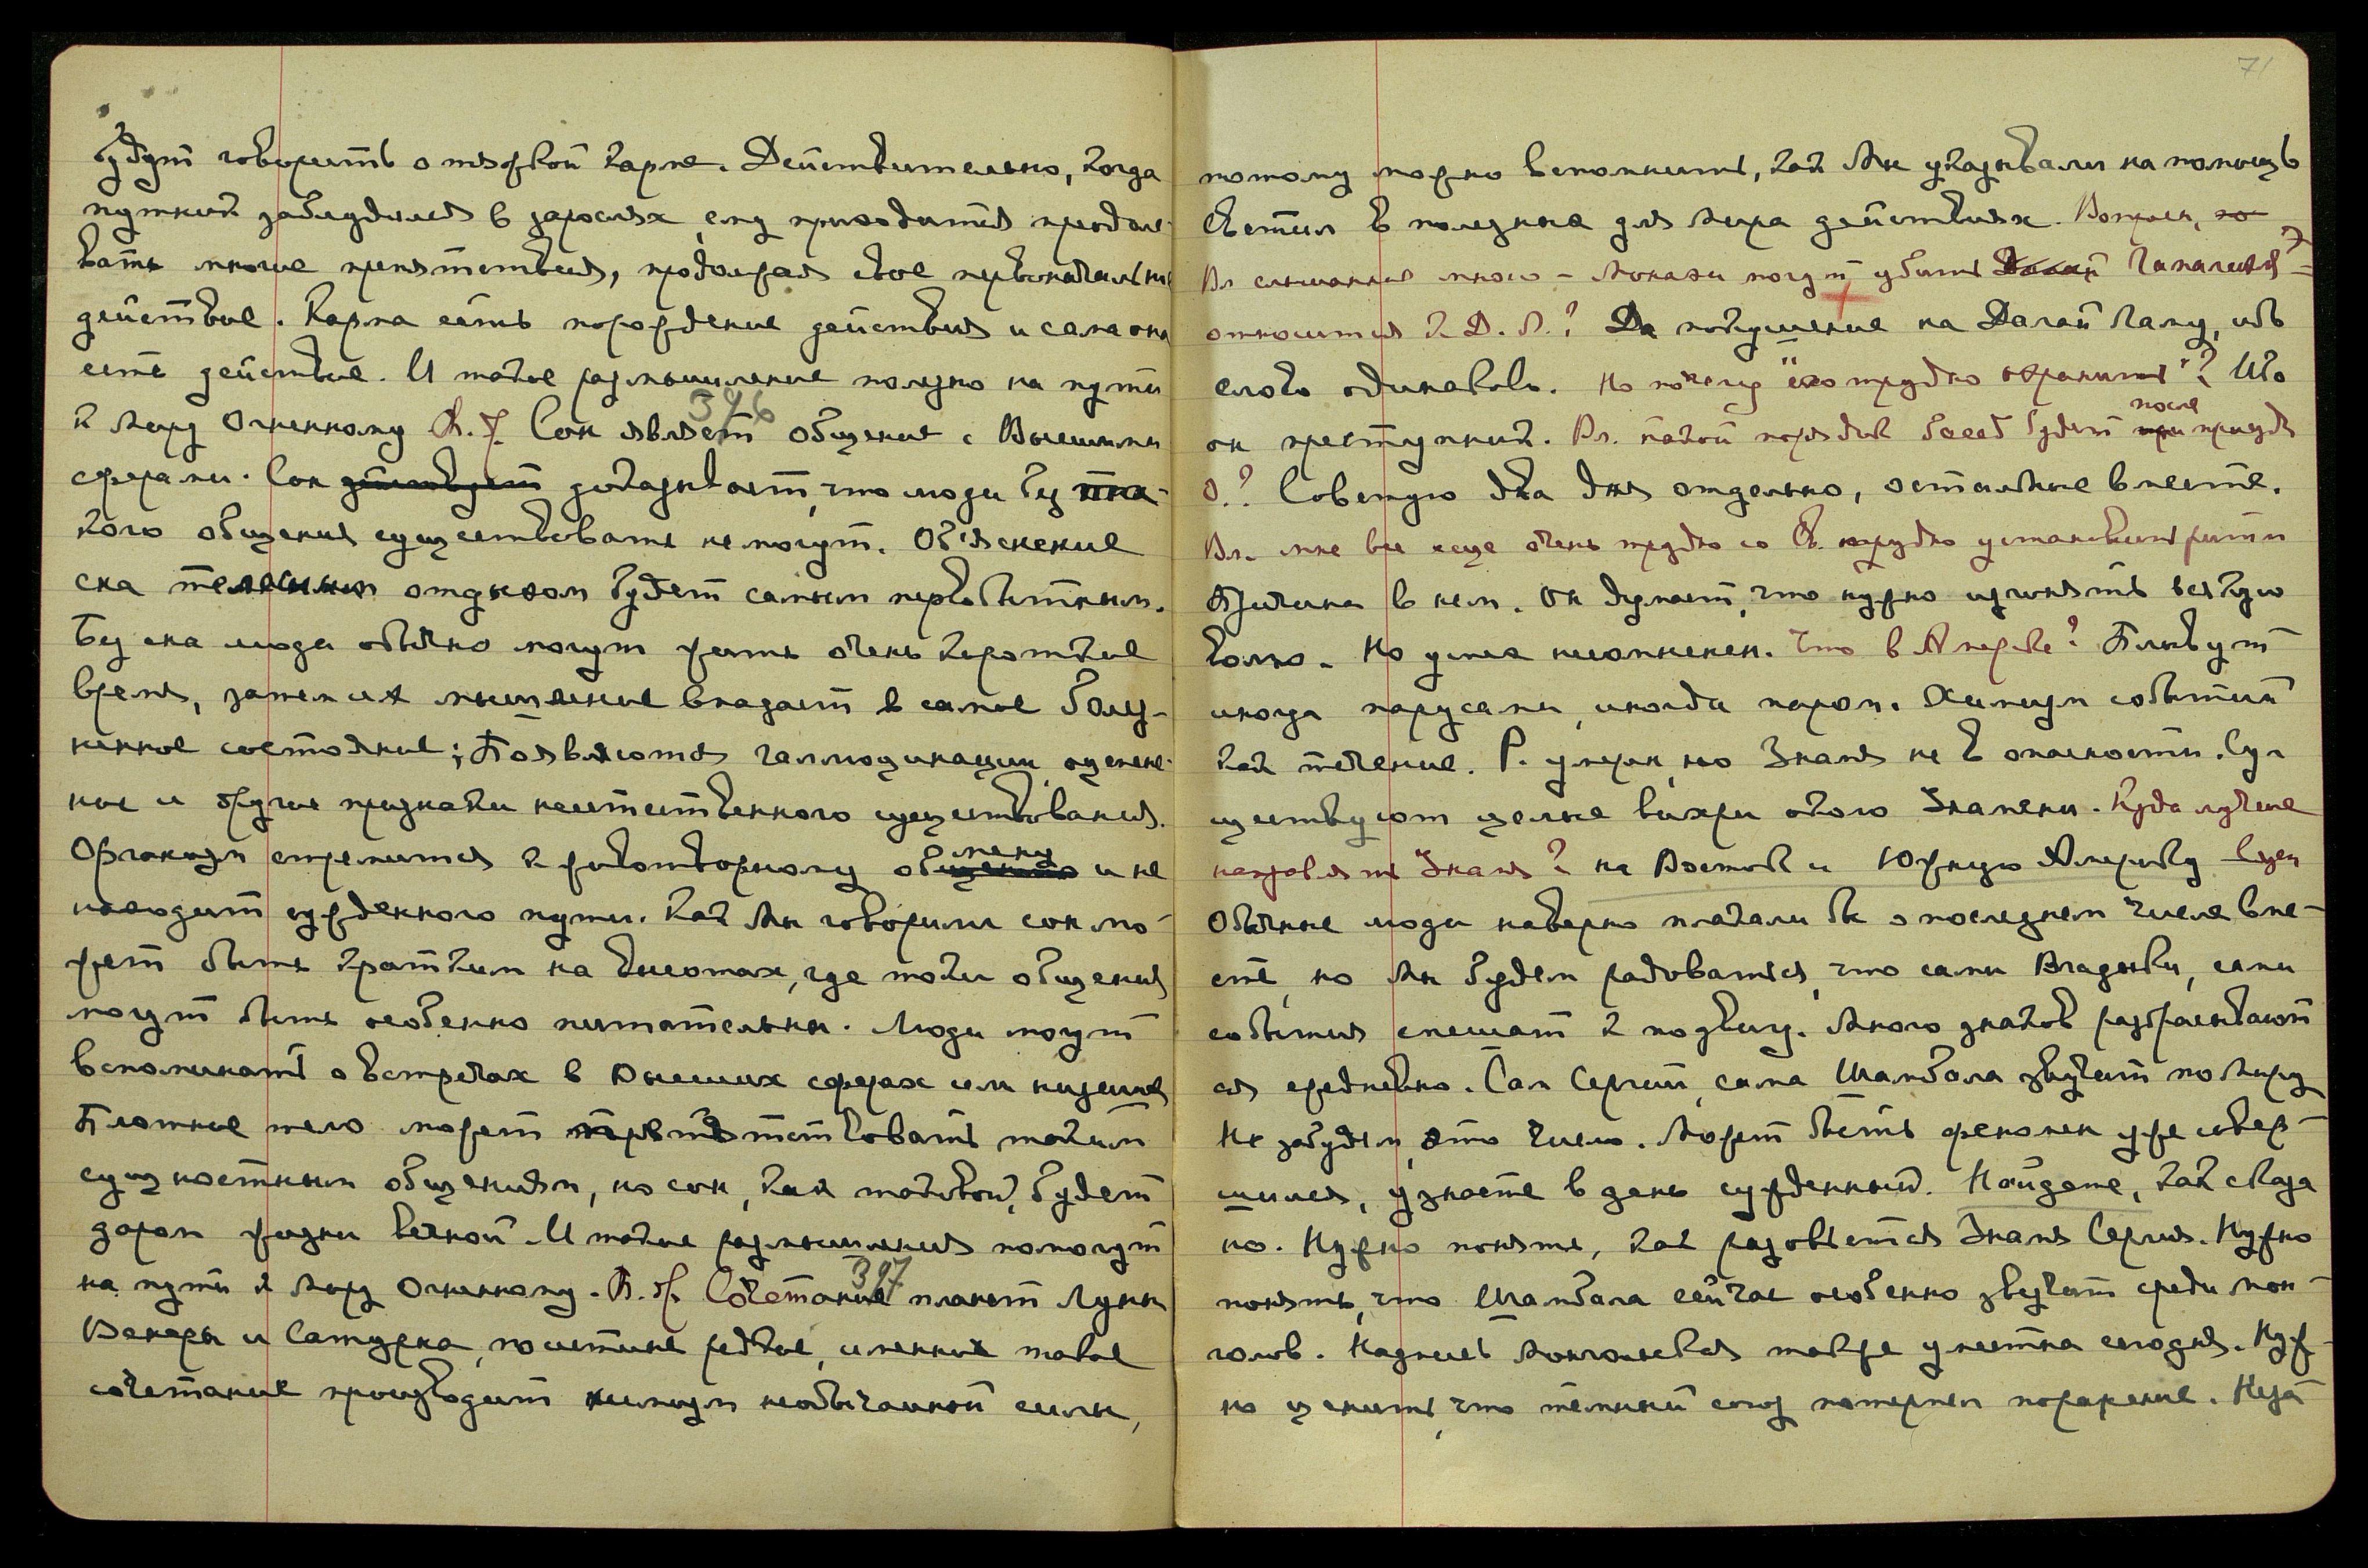 будут говорить о тяжкой карме. Действительно, когда
путник заблудился в зарослях, ему приходится преодоле-
вать многие препятствия, продолжая свое первоначальное
действие. Карма есть порождение действия и сама она
есть действие. И такое размышление полезно на пути
к Миру Огненному
396
Сон являет общение с Высшими
сферами. Сон доказывает, что люди без та-
кого общения существовать не могут. Об'яснение
сна телесным отдыхом будет самым первобытным.
Без сна люди обычно могут жить очень короткое
время, затем их мышление впадает в самое болез-
ненное состояние; Появляются галлюцинации, оцепене-
ние и другие признаки неестественного существования.
Организм стремится к животворному обмену и не
находит сужденного пути. Как Мы говорили сон мо-
жет быть кратким на высотах, где токи общения
могут быть особенно питательны. Люди могут
вспоминать о встречах в Высших сферах или низших
Плотное тело может препятствовать таким
сущностным общениям, но сон, как таковой, будет
даром жизни вечной. И такие размышления помогут
на пути к Миру Огненному.
397
Сочетание планет Луны
Венеры и Сатурна, поистине редкое, именно такое
сочетание производит химизм необычайной силы,
71
потому можно вспомнить, как Мы указывали на помощь
Светил в полезных для мира действиях.
Вл. слышанная много - Монахи могут убить
относится к Д. Л.? Да покушение на Далай Ламу, ибо
слово одинаково. Но почему "его трудно охранить"? Ибо
он преступник. Вл. какой порядок бесед будет после приезда
О.? Советую два дня отдельно, остальные вместе.
Вл. мне все еще очень трудно со Св. трудно установить ритм
Причина в нем. Он думает, что нужно изгонять всякую
волю. Но успех несомненен. Что в Америке? Плывут
иногда парусами, иногда паром. Химизм событий
как течение. Р. умерен, но Знамя не в опасности. Су-
ществуют целые вихри около Знамени. Куда лучше
направлять Знамя? на Восток и Южную Америку
Обычные люди наверно плакали бы о последнем числе вме-
сте, но Мы будем радоваться, что сами Владыки, сами
события спешат к подвигу. Много знаков разбрасывают
ся ежедневно. Сам Сергий, сама Шамбала звучит по Миру
Не забудем, это число. Может быть феномен уже совер-
шился, узнаете в день сужденный. Найдете, как сказа
но. Нужно понять, как разовьется Знамя Сергия. Нужно
понять, что Шамбала сейчас особенно звучит среди мон-
голов. Надпись Монгольская также уместна сегодня. Нуж-
но ценить, что темный союз потерпел поражение.